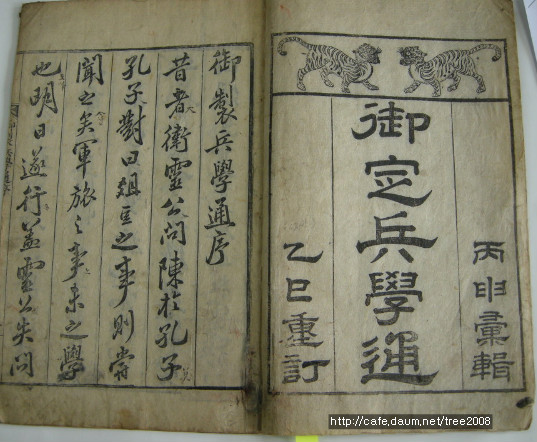 御定兵學通
丙申彙輯
乙巳重訂
御製兵學通序
昔者衛靈公問陳於孔子
孔子對曰俎豆之事則嘗
聞之矣軍旅之事未之學
也明日遂行蓋靈公失問
http://cafe.daum.net/tree2008